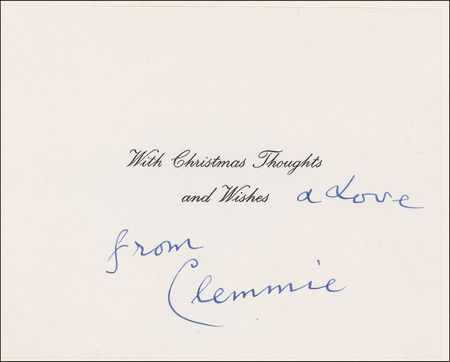 With Christmas Thoughts
and Wishes & Love
from
Clemmie